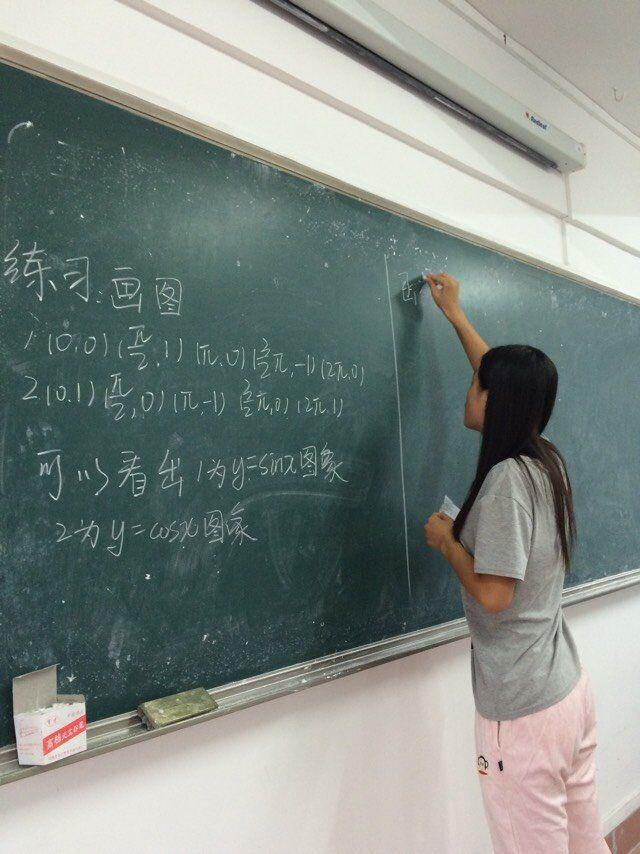 练习:画图
1.(0,0)(π/2,1)(π,0)(3/2π,-1)(2π,0)
2.(0,1)(π/2,0)(π,-1)(3/2π,0)(2π,1)
可以看出1为y=sinx图象
2为y=cosx图象
Redleaf
高级无尘粉笔